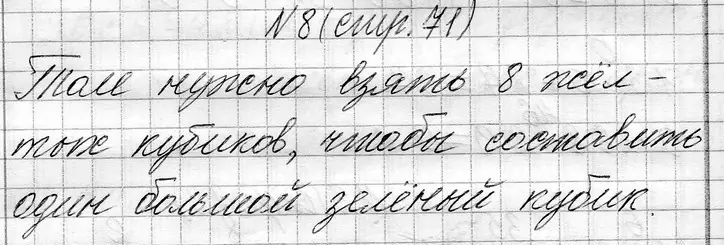 N8 (стр. 71)
Толе нужно взять 8 жёл-
тых кубиков, чтобы составить
один большой зелёный кубик.